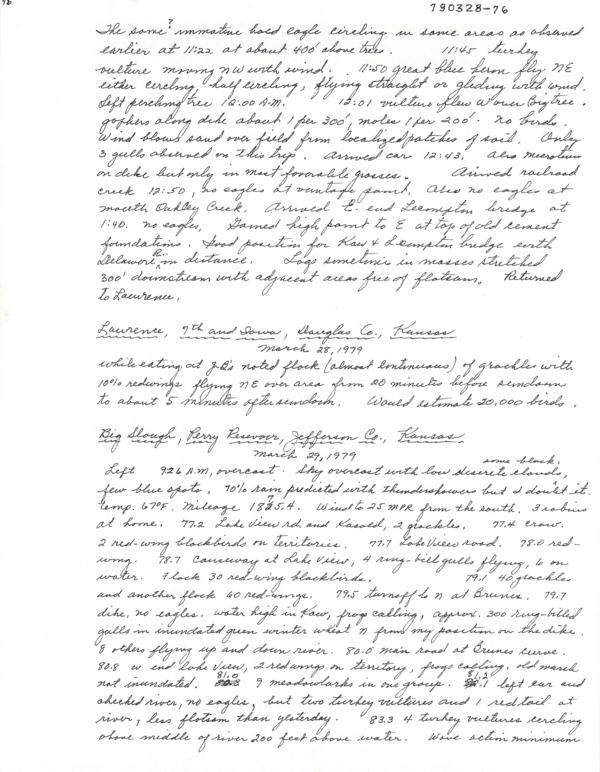 790328-76
The same? immature bald eagle circling in same areas as observed
earlier at 11:22 at about 400' above trees. 11:45 turkey
vulture moving NW with wind. 11:50 great blue heron fly NE
either circling, half circling, flying straight or gliding with wind.
Left perching tree 12:00 A.M. 12:01 vulture flew W over Big tree.
gophers along dike about 1 per 300', moles 1 per 200'. no birds.
Wind blows sand over field from localized patches of soil. Only
3 gulls observed on this trip. Arrived car 12:43. Also microtus
on dike but only in most favorable grasses. Arrived railroad
creek 12:50, no eagles at vantage point. Also no eagles at
mouth Oakley Creek. Arrived E. end Lecompton bridge at
1:40. no eagles. Gained high point to E at top of old cement
foundations. Good position for Kaw & Lecompton bridge with
Delaware R. in distance. Logs sometimes in masses stretched
300' downstream with adjacent areas free of flotsam. Returned
to Lawrence.
Lawrence, 9th and Iowa, Douglas Co., Kansas
March 28, 1979
while eating at J.B's noted flock (almost continuous) of grackles with
10% redwings flying NE over area from 20 minutes before sundown
to about 5 minutes after sundown. Would estimate 20,000 birds.
Big Slough, Perry Resevoir, Jefferson Co., Kansas
March 29, 1979
some black.
Left 926 A.M, overcast. Sky overcast with low discrete clouds,
few blue spots, 70% rain predicted with thundershowers but I doubt it.
temp. 67°F. Mileage 1875.4. Wind to 25 MPR from the south. 3 robins
at home. 77.2 Lake View rd. and Kasold, 2 grackles. 77.4 crow.
2 red-wing blackbirds on territories. 77.7 Lake View road. 78.0 red-
wing. 78.7 causeway at Lake View, 4 ring-bill gulls flying, 6 on
water. Flock 30 red-wing blackbirds. 79.1 40 grackles
and another flock 60 red-wings. 79.5 turnoff to N at Brunes. 79.7
dike, no eagles. water high in Kaw, frog calling, approx. 300 ring-billed
gulls in inundated green winter wheat N from my position on the dike.
8 others flying up and down river. 80.0 main road at Brunes curve.
80.8 W end Lake View, 2 redwings on territory, frogs calling, old marsh
not inundated. 81.0 9 meadowlarks in one group. 81.2 left car and
checked river, no eagles, but two turkey vultures and 1 redtail at
river, less flotsam than yesterday. 83.3 4 turkey vultures circling
above middle of river 200 feet above water. Wave action minimum